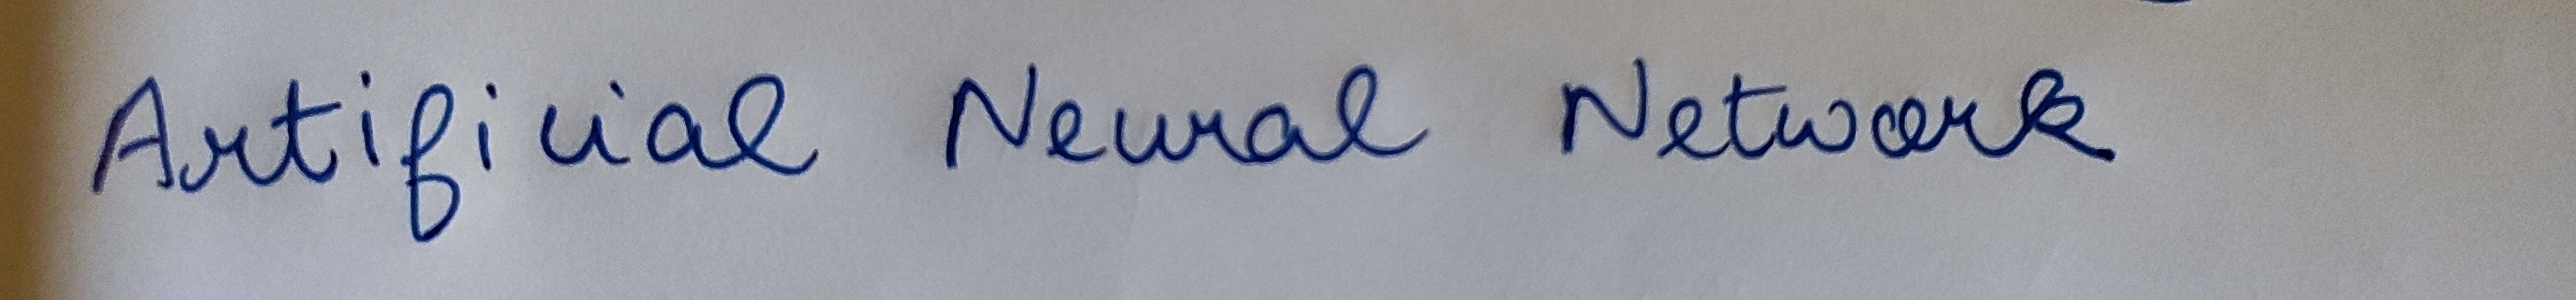 Artificial Neural Network